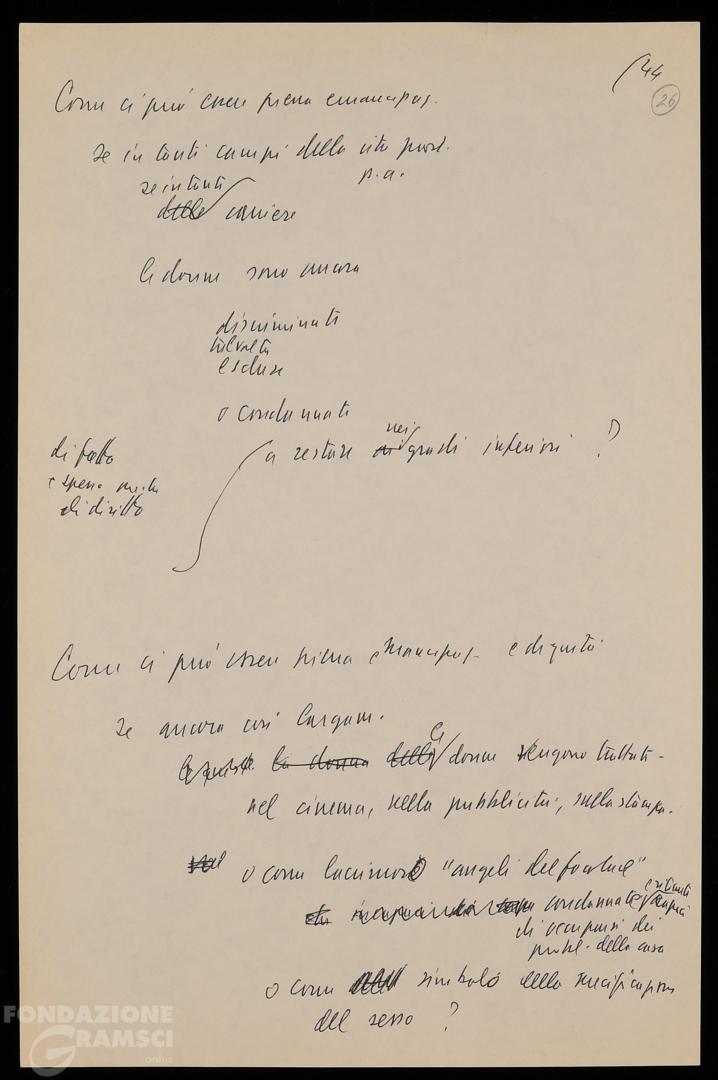 /44
26
Come ci può essere piena emancipaz.
se in tanti campi della vita prod.
p.a.
se in tanti
delle carriere
le donne sono ancora
discriminate
talvolta
escluse
o condannate
a restare nei gradi inferiori ?
di fatto
e spesso anche
di diritto
Come ci può essere piena emancipaz. e dignità
se ancora così largam.
la donna delle le donne vengono trattate
nel cinema, nella pubblicità, sulla stampa.
o come "angeli del focolare"
condannate
di occuparsi dei
probl. della casa
o come simbolo della
del sesso ?
FONDAZIONE
GRAMSCI
onlus